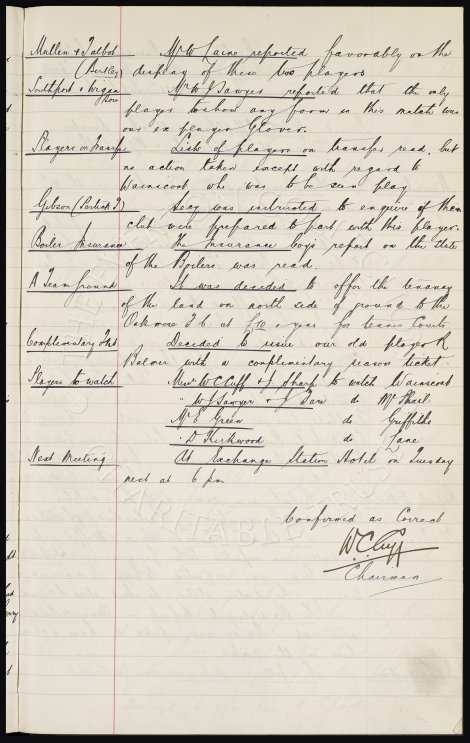 Mullen & Talbot Mr W Laine reported favorably on the
(Birtley) display of these two players
Southport v Wigan Mr W J Sawyer reported that the only
Boro player to show any form in this match was
our ex player Glover.
Players on Transfer Lists of players on transfer read, but
no action taken except with regard to
Wainscoat who was to be seen play
Gibson (Partick T) Secy was instructed to enquire if these
club were prepared to part with this player.
Boiler Insurance The Insurance Coy's report on the state
of the Boilers was read.
A Team ground It was decided to offer the tenancy
of the land on north side of ground to the
Oakmere T.C. at £10 a year for tennis courts
Complimentary Tkt Decided to issue our old player R
Balmer with a complimentary season ticket.
Players to watch Messrs W C Cuff & J Sharp to watch Wainscoat
" W J Sawyer & J do
Mr E Green do Griffiths
" D Kirkwood do Lane
Next Meeting At Exchange Station Hotel on Tuesday
next at 6 pm
Confirmed as Correct
W.C. Cuff
Chairman